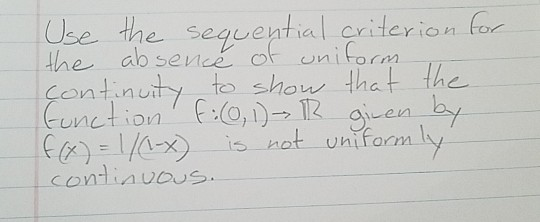 Use the sequential criterion for
the absence of uniform
continuity to show that the
function f:(0,1)→ℝ given by
f(x)=1/(1-x) is not uniformly
continuous.